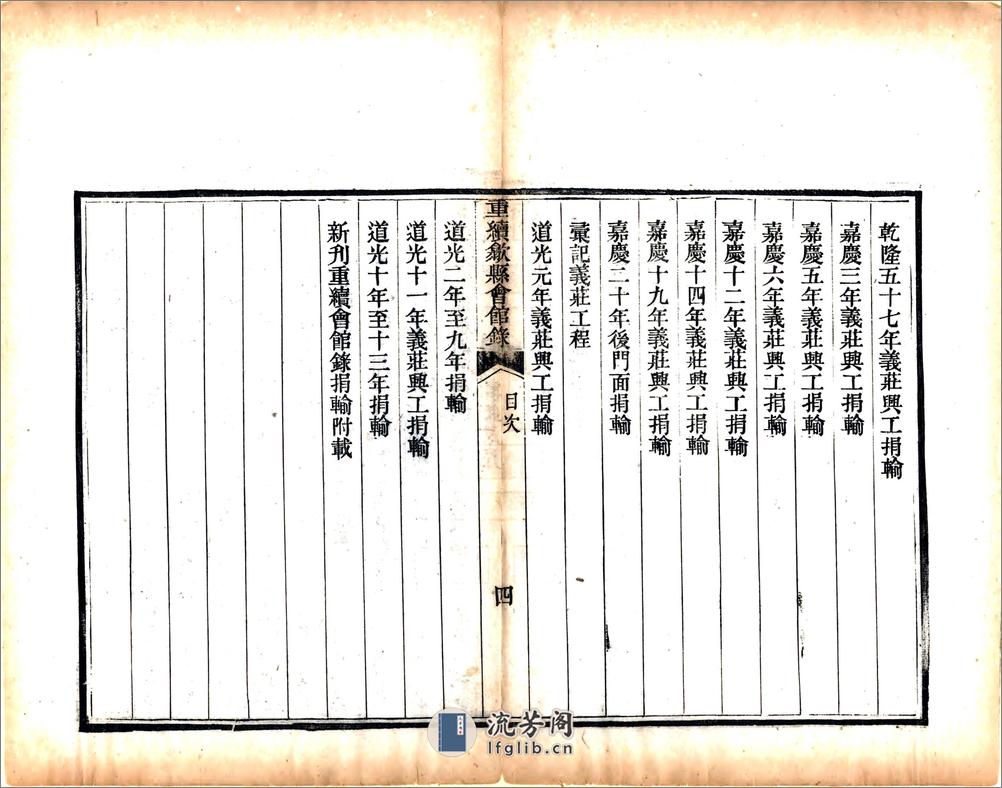 乾隆五十七年義莊興工捐輸
嘉慶三年義莊興工捐輸
嘉慶五年義莊興工捐輸
嘉慶六年義莊興工捐輸
嘉慶十二年義莊興工捐輸
嘉慶十四年義莊興工捐輸
嘉慶十九年義莊興工捐輸
嘉慶二十年後門面捐輸
彙記義莊工程
道光元年義莊興工捐輸
重續歙縣會館錄
目次
四
道光二年至九年捐輸
道光十一年義莊興工捐輸
道光十年至十三年捐輸
新刋重續會館錄捐輸附載
流芳阁
lfglib.cn